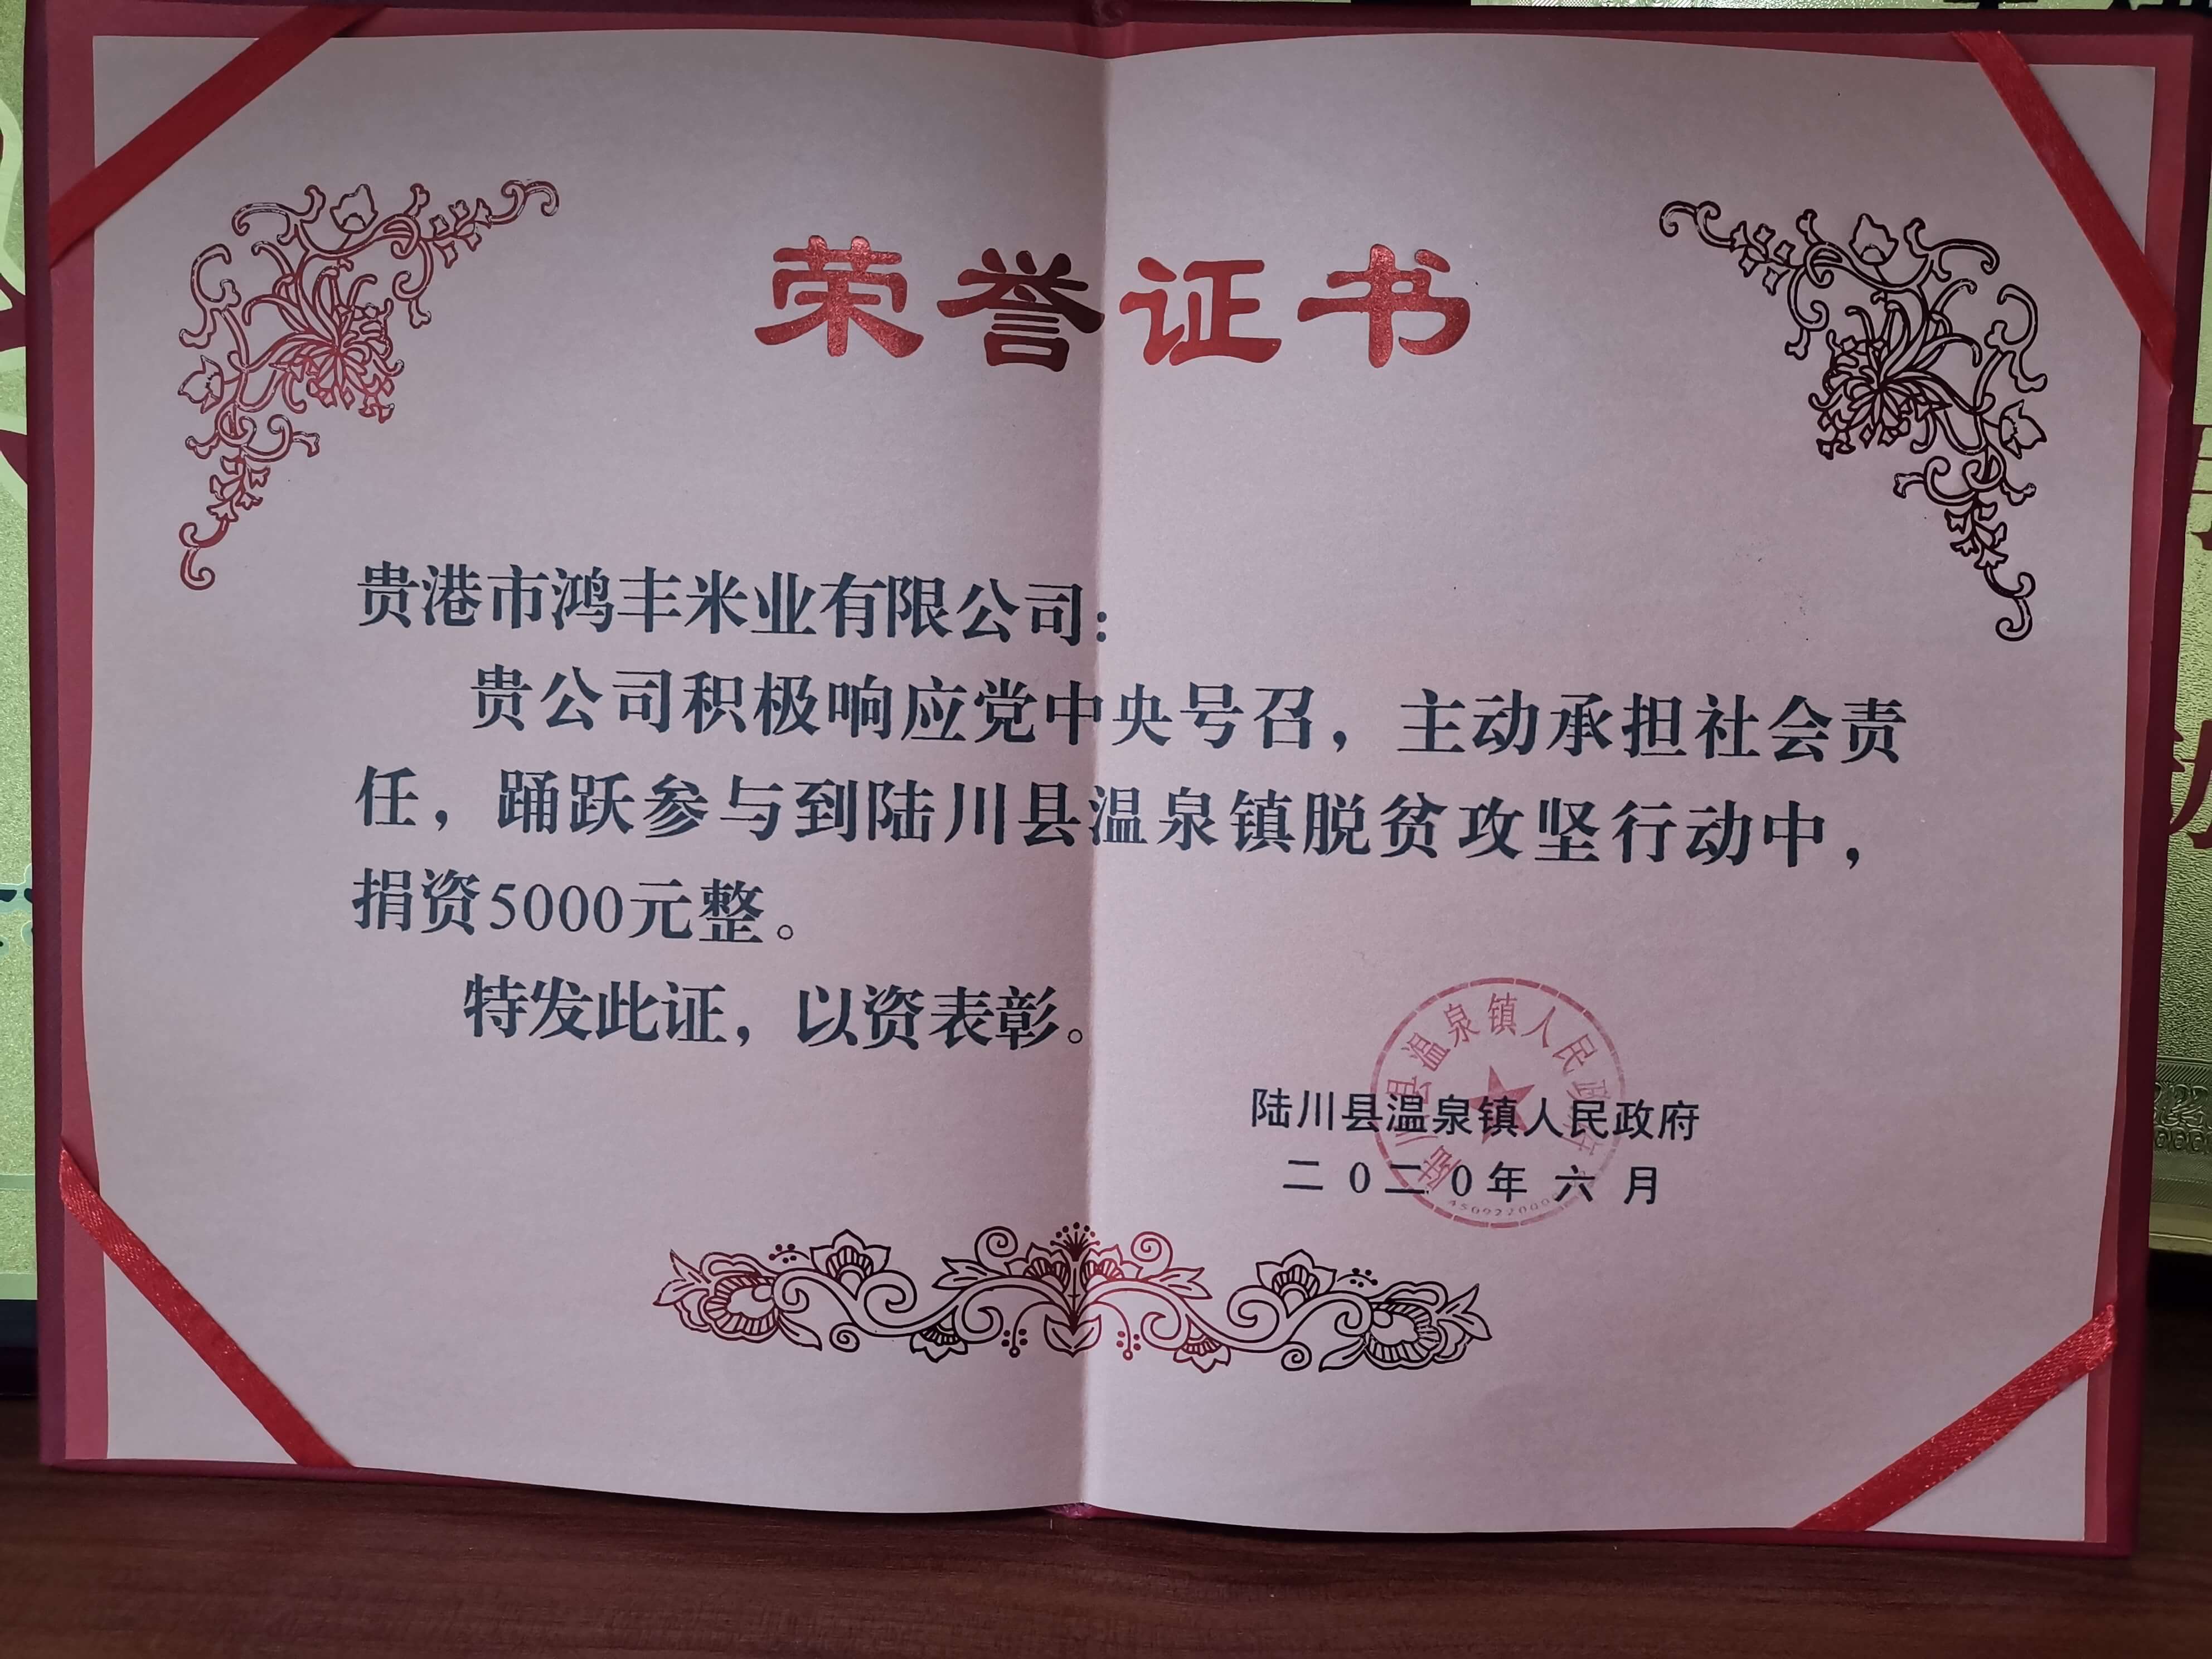 荣誉证书
贵港市鸿丰米业有限公司:
贵公司积极响应党中央号召，主动承担社会责
任，踊跃参与到陆川县温泉镇脱贫攻坚行动中，
捐资5000元整。
特发此证，以资表彰。
陆川县温泉镇人民政府
陆川县温泉镇人民政府
二0二0年六月